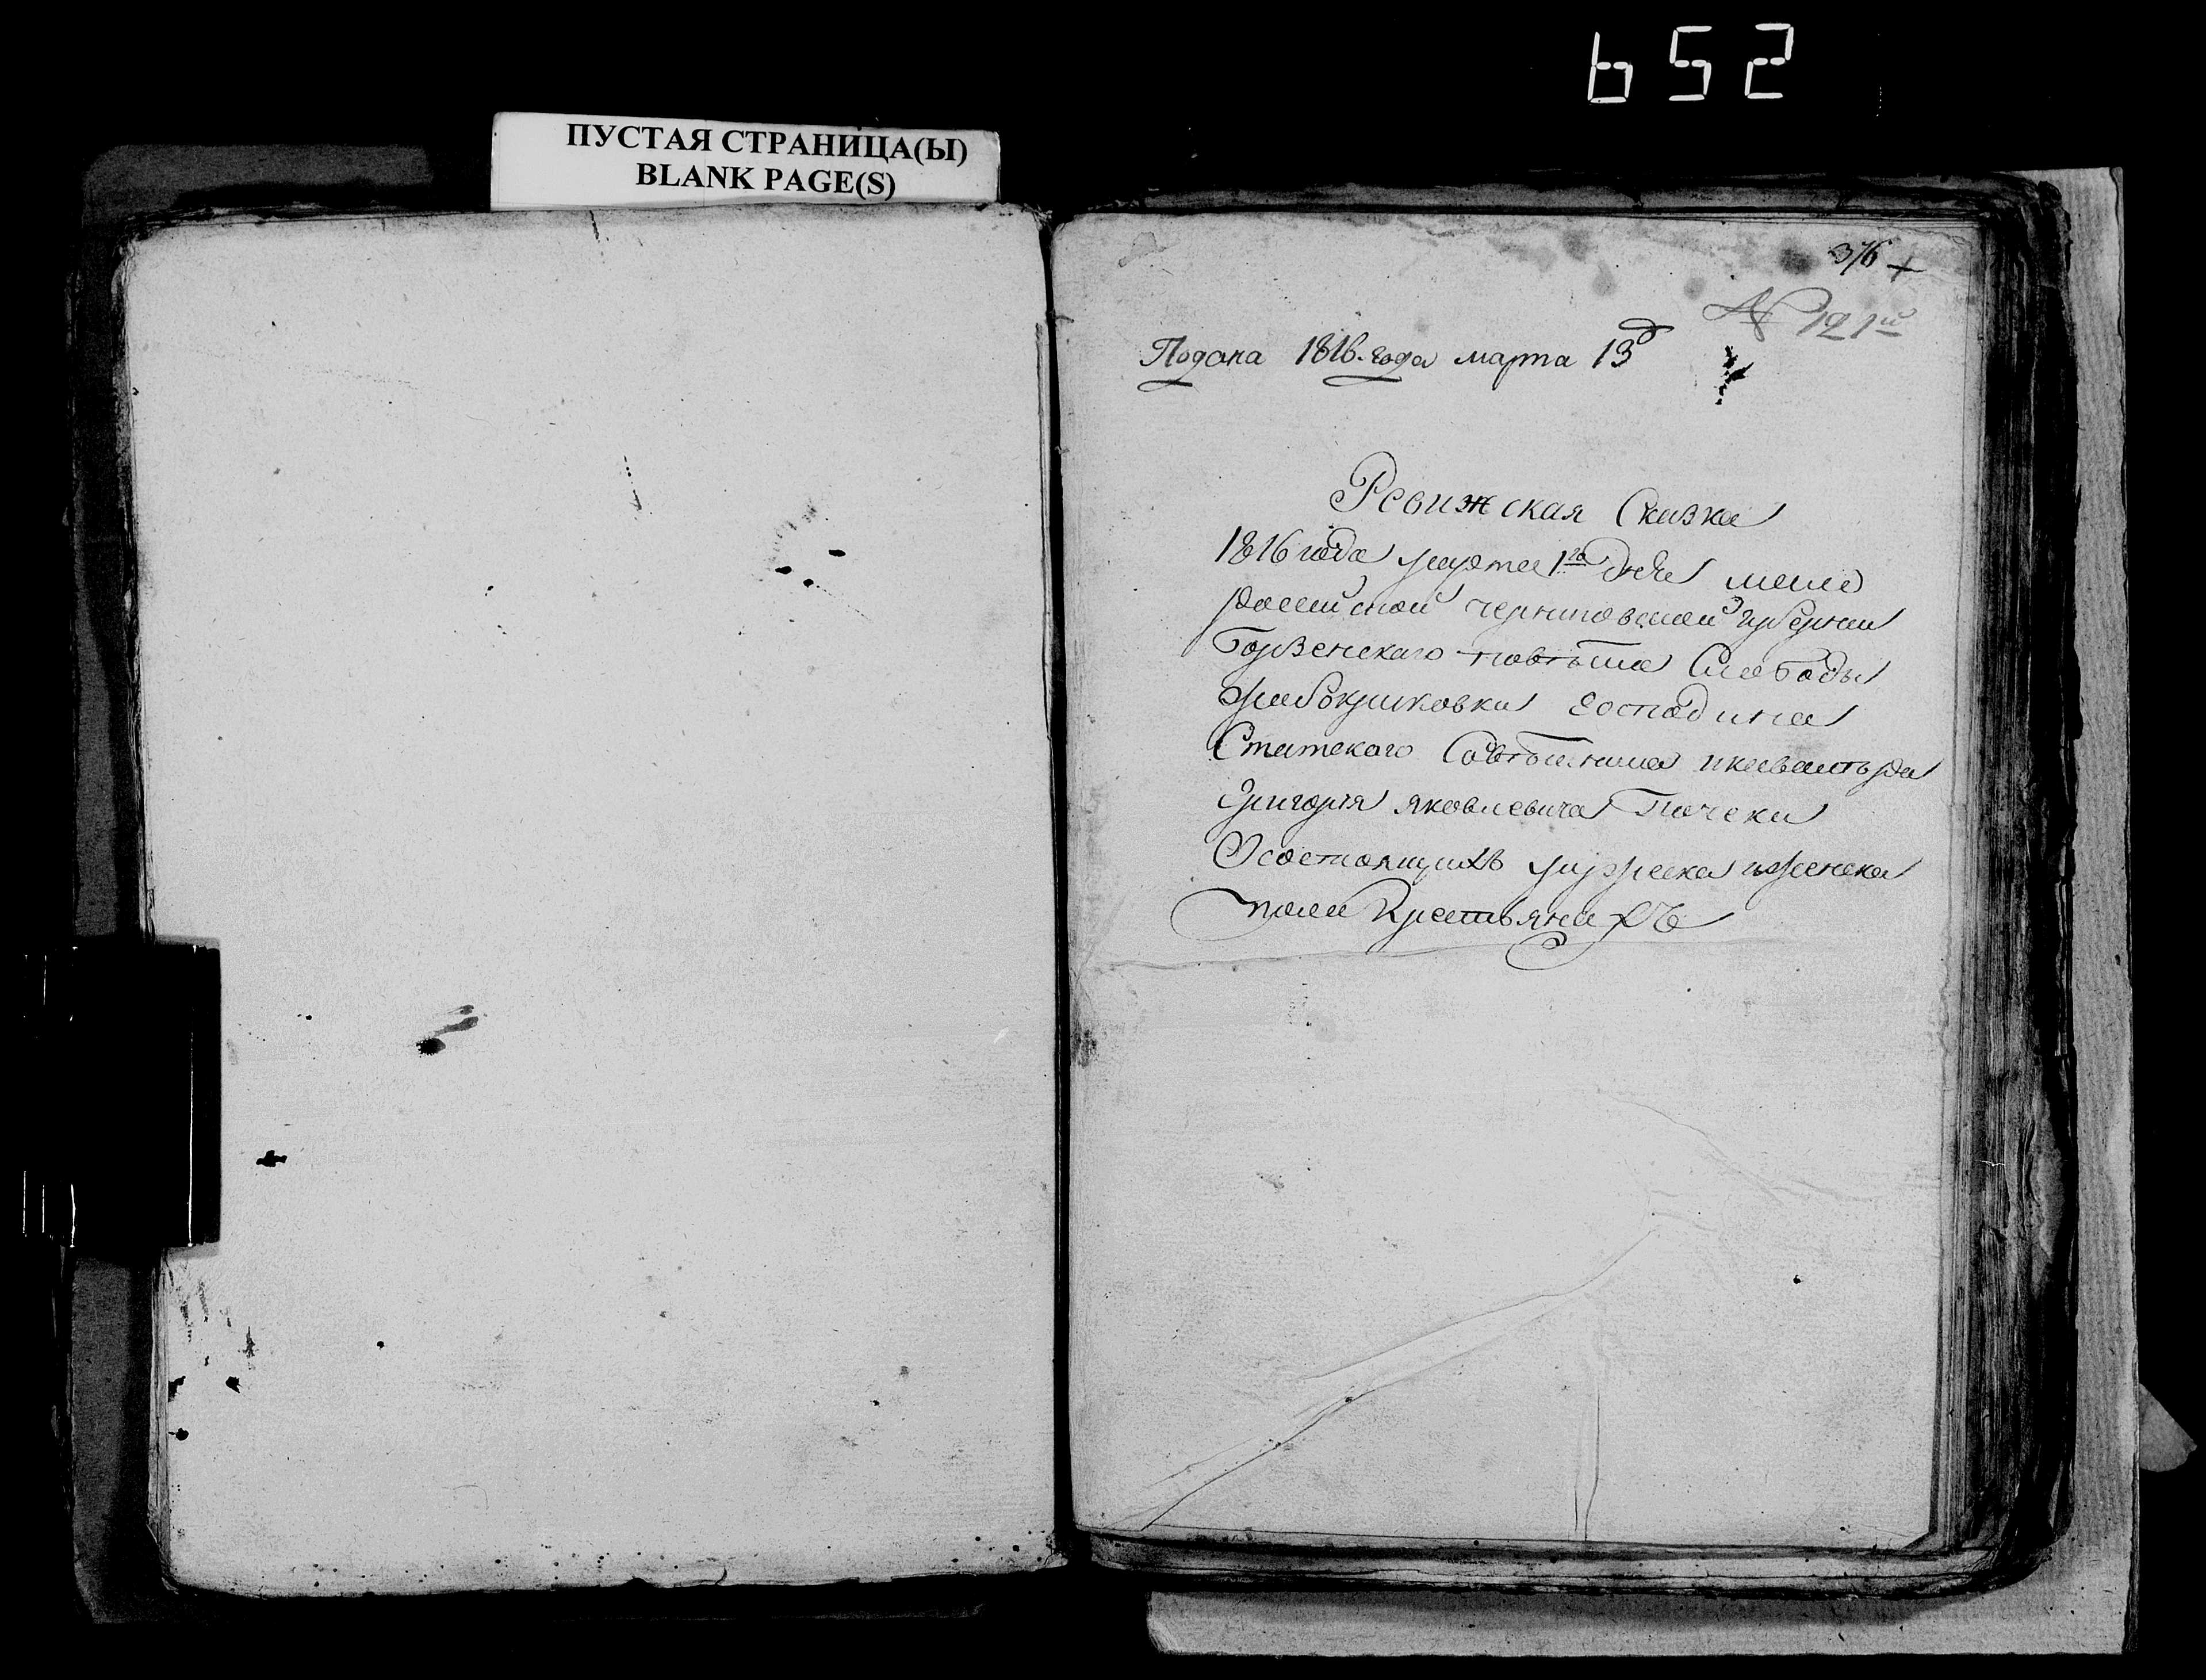 652
ПУСТАЯ СТРАНИЦА(Ы)
BLANK PAGE(S)
376 +
№ 121й
Подана 1816. года марта 13д
Ревижская Сказка
1816 года марта 1го дня мало
российской черниговской губернии
Борзенского повѣта Слободы
господина
Статского Совѣтника икавалѣра
григория яковлевича Почеки
Осостоящихъ мужеска иженска
пола Крестьянахъ